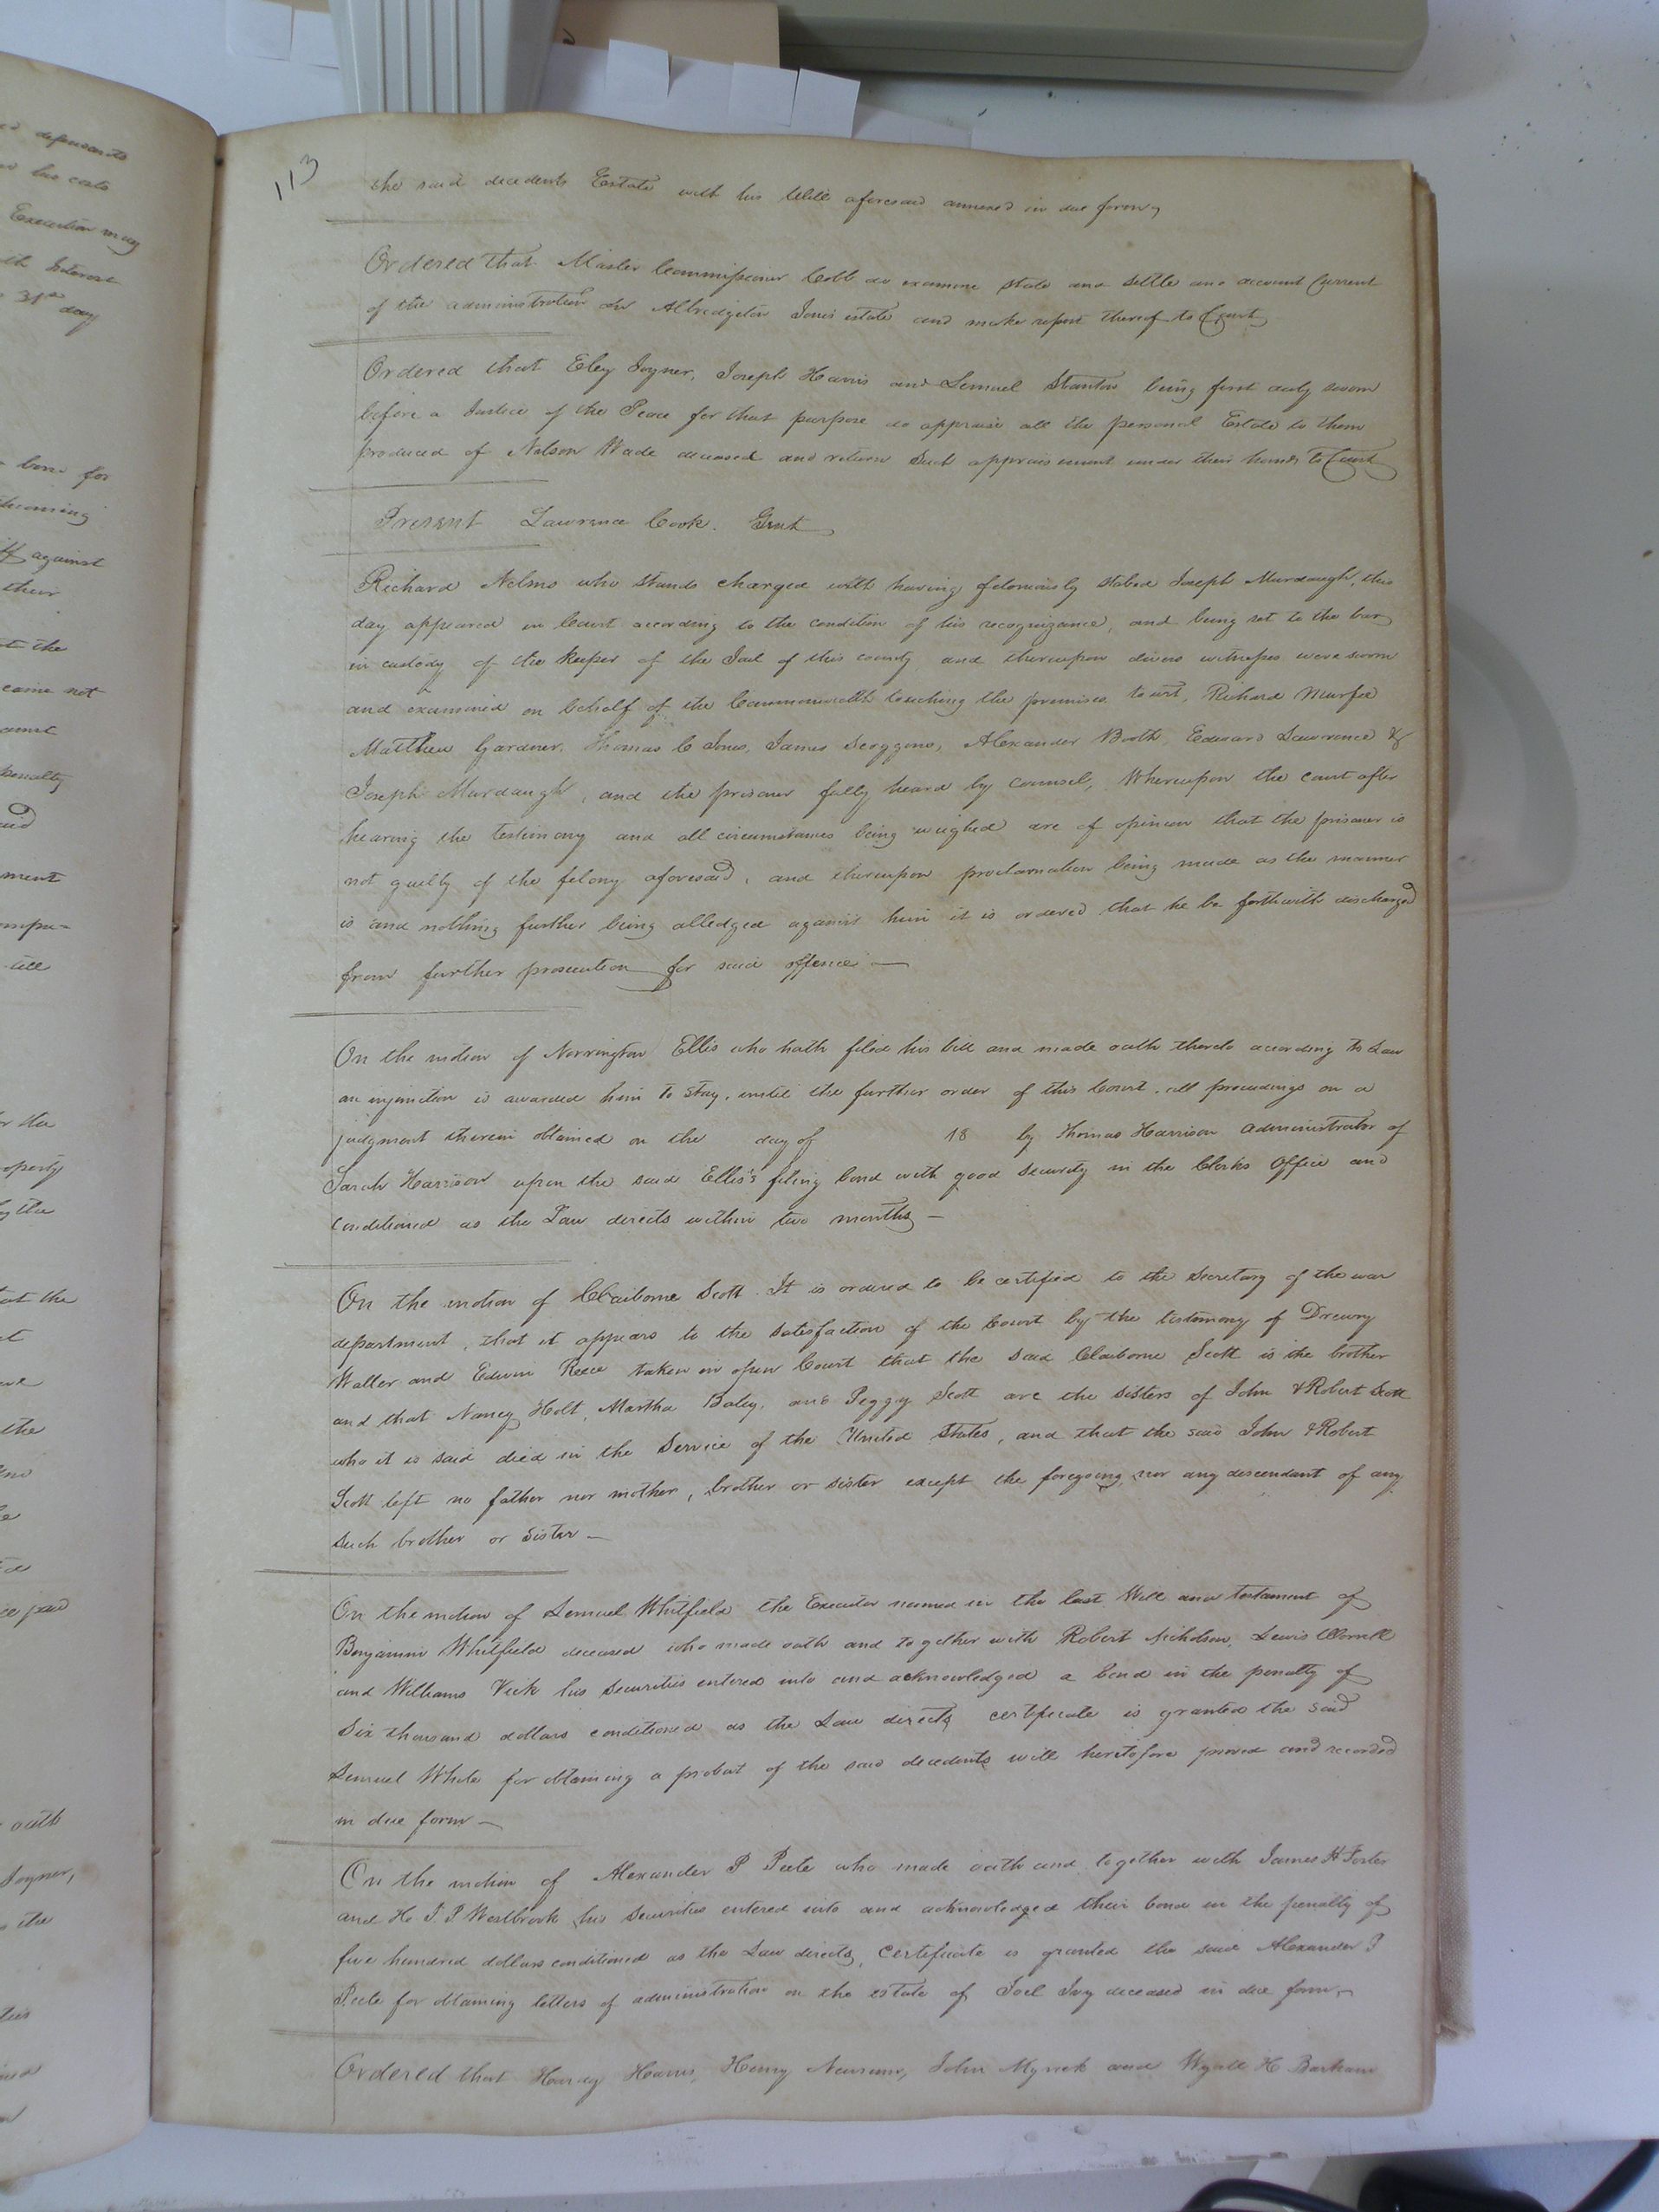 113
the said decedents Estate with his Will aforesaid annexed in due form
Ordered that Master Commissioner Cobb do examine state and settle an account Current
of the administration on Albridgton Jones estate and make report thereof to Court
Ordered that Eley Joyner, Joseph Harris and Lemuel Stanton being first duly sworn
before a Justice of the Peace for that purpose do appraise all the personal Estate to them
produced of Nelson Wade deceased and return Such appraisement under their hands to Court
Present Lawrence Cook. Gent
Richard Nelms who stands charged with having feloniously stabed Joseph Murdaugh, this
day appeared in Court according to the condition of his recognizance, and being set to the bar
in custody of the keeper of the Jail of this county and thereupon divers witnesses were sworn
and examined on behalf of the Commonwealth touching the premises to wit, Richard Murfee
Matthew Gardner, Thomas C Jones, James Scoggons, Alexander Booth, Edward Lawrence &
Joseph Murdaugh, and the prisoner fully heard by Counsel, Whereupon the court after
hearing the testimony and all circumstances being weighed are of opinion that the prisoner is
not guilty of the felony aforesaid, and thereupon proclamation being made as the manner
is and nothing further being alledged against him it is ordered that he be forthwith discharged
from further prosecution for said offence —
On the motion of Norrington Ellis who hath filed his bill and made oath thereto according to Law
an injunction is awarded him to stay, until the further order of this Court, all proceedings on a
judgment therein obtained on the day of 18 by Thomas Harrison administrator of
Sarah Harrison upon the said Ellis's filing bond with good security in the Clerks Office and
conditioned as the Law directs within two months —
On the motion of Claiborne Scott It is ordered to be certified to the Secretary of the war
department, that it appears to the satisfaction of the Court by the testimony of Drewry
Waller and Edwin Reece taken in open Court that the said Claiborne Scott is the brother
and that Nancy Holt, Martha Baley, and Peggy Scott are the sisters of John & Robert Scott
who it is said died in the Service of the United States, and that the said John & Robert
Scott left no father nor mother, brother or sister except the foregoing nor any descendant of any
such brother or sister —
On the motion of Lemuel Whitfield the Executor named in the last Will and testament of
Benjamin Whitfield deceased who made oath and together with Robert Nicholson, Lewis Worrell
and Williams Vick his Securities entered into and acknowledged a bond in the penalty of
Six thousand dollars conditioned as the Law directs certificate is granted the said
Lemuel White for obtaining a probat of the said decedents will heretofore proved and recorded
in due form —
On the motion of Alexander P Peete who made oath and together with James H Foster
and H. J. P Westbrook his Securities entered into and acknowledged their bond in the penalty of
five hundred dollars conditioned as the Law directs, Certificate is granted the said Alexander P
Peete for obtaining letters of administration on the estate of Joel Ivy deceased in due form
Ordered that Harris, Henry Newsums, John Myrick and Wyatt H Barham